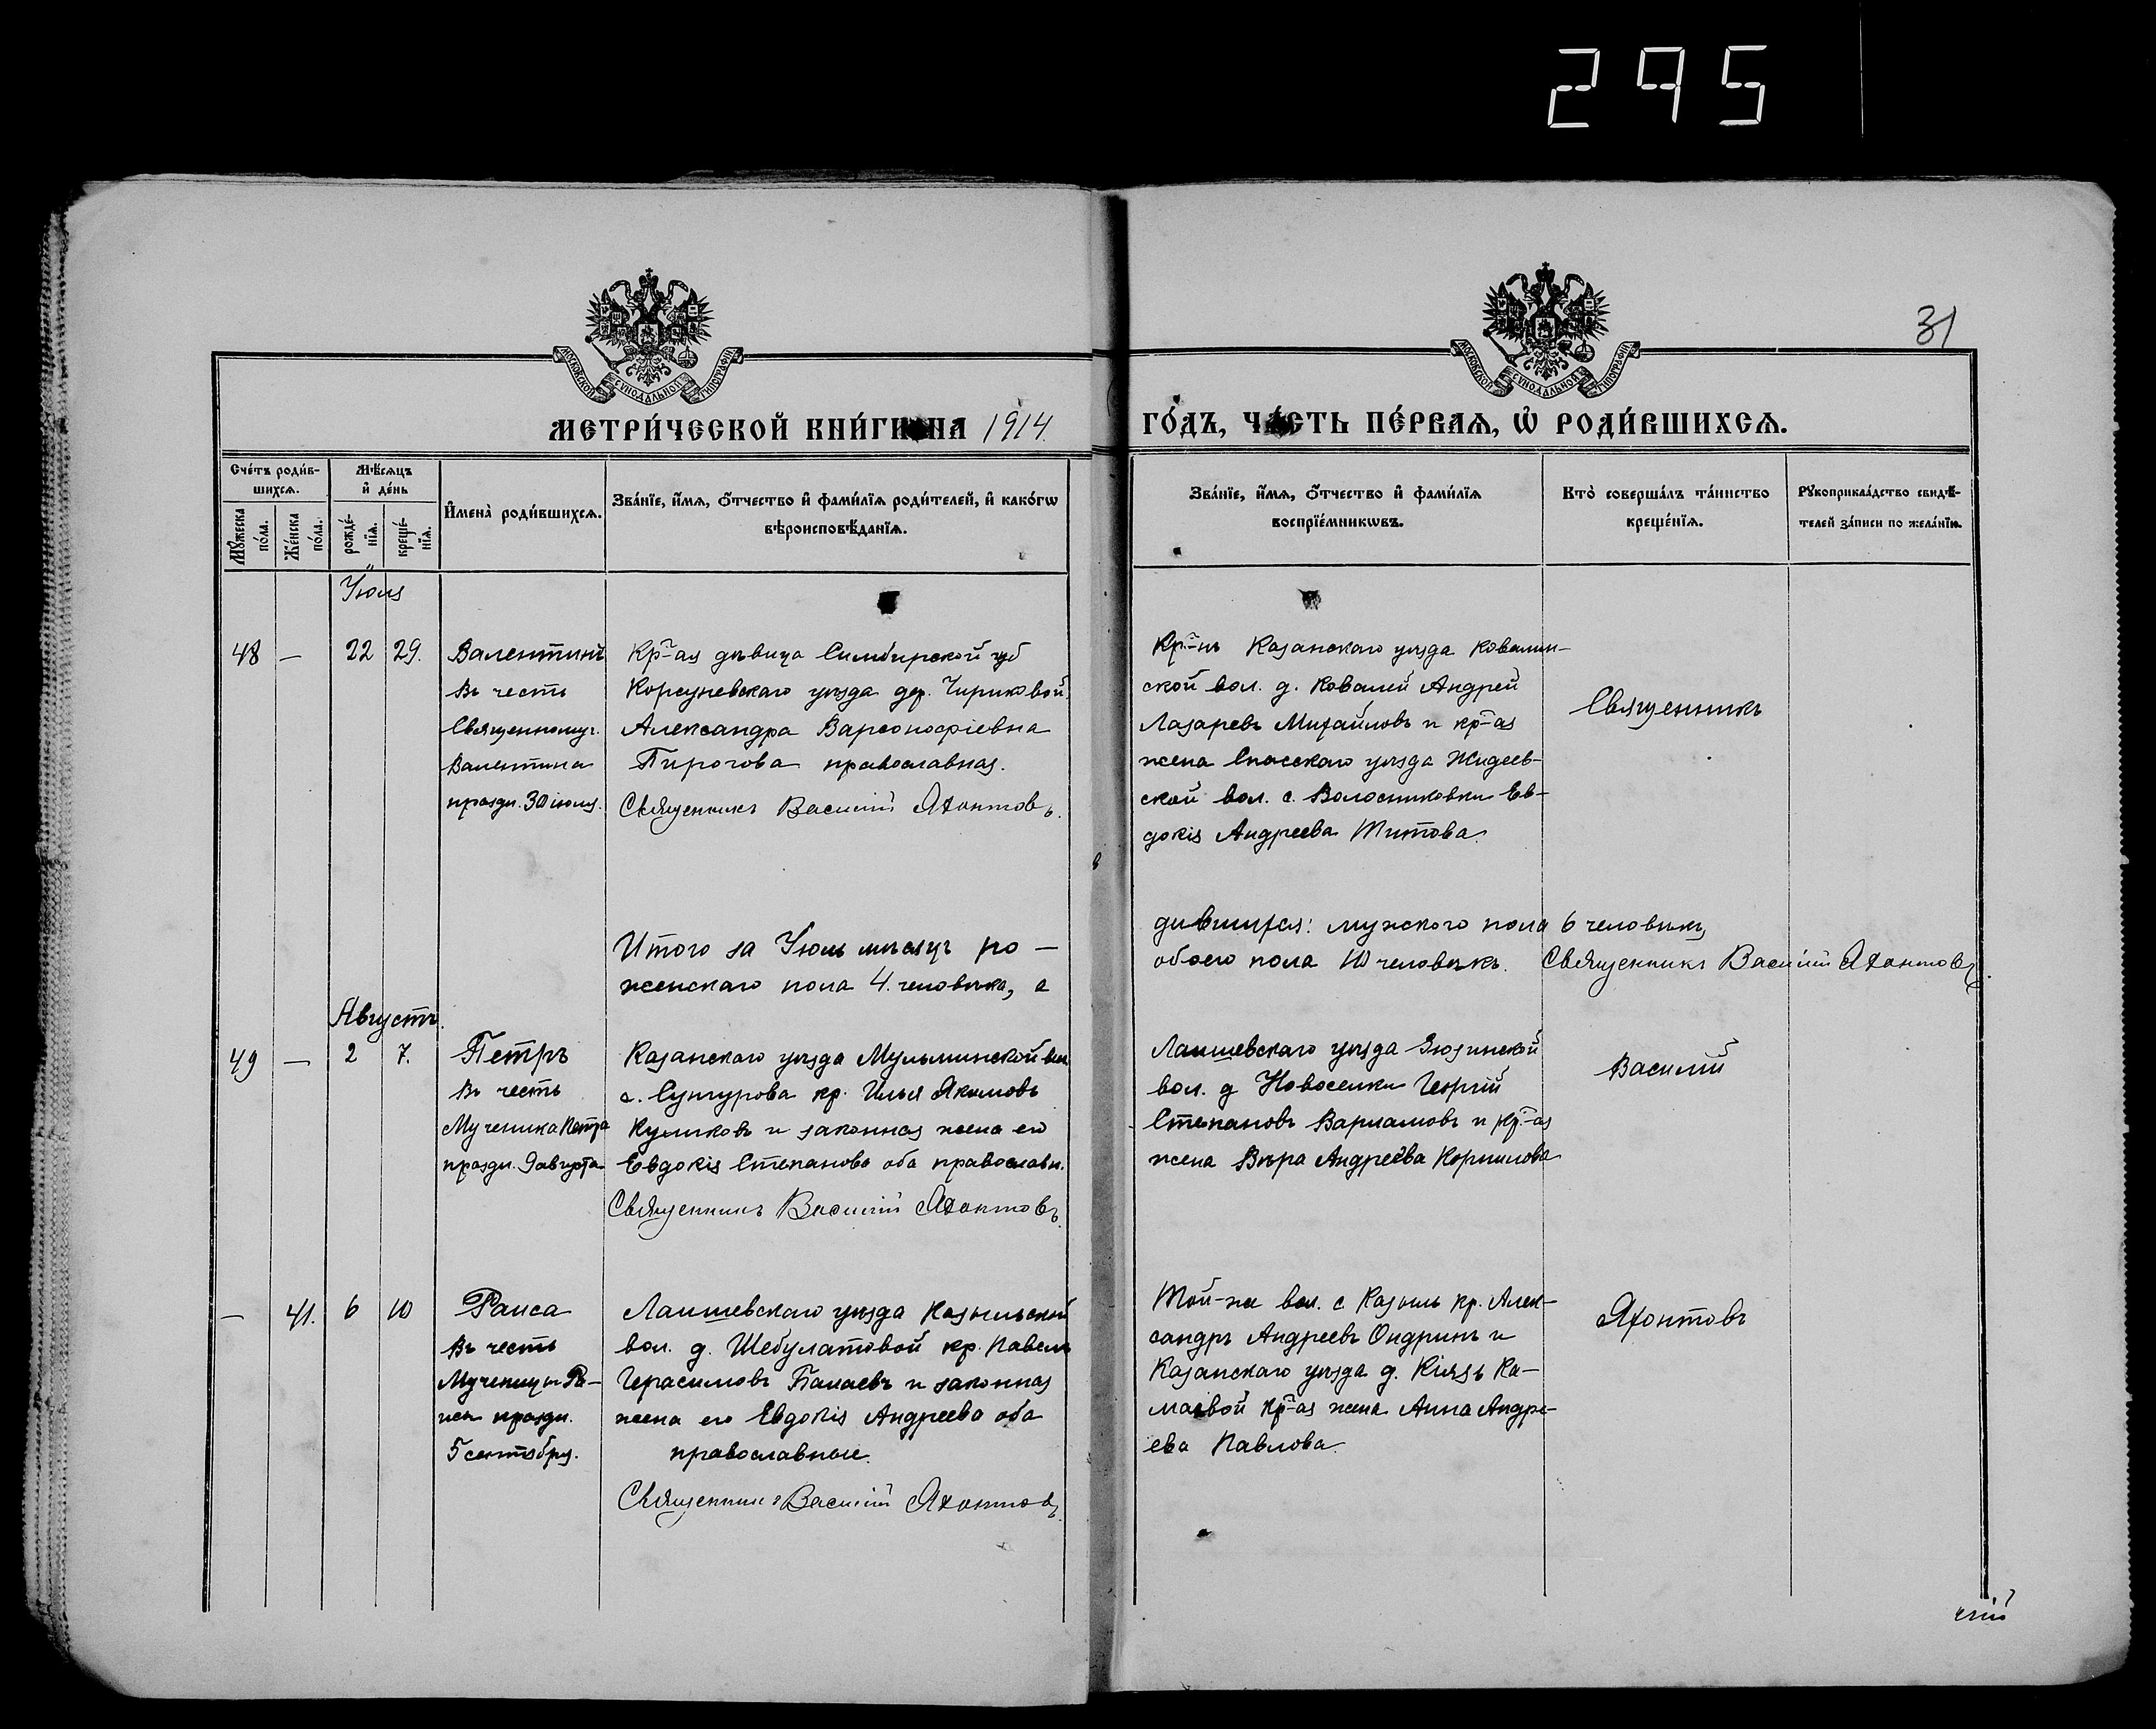 295
31
МОСКОВСКОЙ СѴНОДАЛЬНОЙ ТИПОГРАФІИ
МОСКОВСКОЙ СѴНОДАЛЬНОЙ ТИПОГРАФІИ
МЕТРИ́ЧЕСКОЙ КНИ́ГИ НА 1914
ГО́ДЪ, ЧА́СТЬ ПЕ́РВАѦ, Ѡ҆ РОДИ́ВШИХСѦ.
Сче́тъ роди́в-
шихсѧ.
Мꙋ́жеска по́ла.
Же́нска по́ла.
Мѣ́сѧцъ
и҆ де́нь
рожде́-
нїѧ.
креще́-
нїѧ.
И҆мена̀ роди́вшихсѧ.
Зва́нїе, и҆́мѧ, ѻ҆́тчество и҆ фами́лїѧ роди́телей, и҆ како́гѡ
вѣроисповѣ́данїѧ.
Зва́нїе, и҆́мѧ, ѻ҆́тчество и҆ фами́лїѧ
воспрїе́мникѡвъ.
Кто̀ соверша́лъ та́инство
креще́нїѧ.
Рꙋкоприкла́дство свидѣ́-
телей за́писи по жела́нїю.
Іюля
48 — 22 29.
Валентинъ
Въ честь
Священномуч.
Валентина
праздн. 30 іюля.
Кр-ая дѣвица Симбирской губ
Корсуневскаго уѣзда дер. Чириковой
Александра Варсонофіевна
Пирогова православная.
Священникъ Василій Яхонтовъ.
Кр-нъ Казанскаго уѣзда Ковалин-
ской вол. д. Ковалей Андрей
Лазаревъ Михайловъ и кр-ая
жена Спасскаго уѣзда Жидеев-
ской вол. с. Волосниковки Ев-
докія Андреева Титова.
Священникъ
Итого за Іюль мѣсяцъ ро-
дившихся: мужского пола 6 человѣкъ,
женскаго пола 4. человѣка, а
обоего пола 10 человѣкъ. Священникъ Василій Яхонтовъ.
Августъ.
49 — 2 7.
Петръ
Въ честь
Мученика Петра
праздн. 9 августа
Казанскаго уѣзда Мульминской вол
с. Сунгурова кр. Илья Якимовъ
Куликовъ и законная жена его
Евдокія Степанова оба православн.
Священникъ Василій Яхонтовъ.
Лаишевскаго уѣзда Зюзинской
вол. д Новоселки Георгій
Степановъ Варламовъ и кр-ая
жена Вѣра Андреева Корнилова
Василій
— 41. 6 10
Раиса
Въ честь
Мученицы Ра-
исы праздн.
5 сентября.
Лаишевскаго уѣзда Казыльской
вол. д. Шебулатовой кр. Павелъ
Герасимовъ Палаевъ и законная
жена его Евдокія Андреева оба
православные.
Священникъ Василій Яхонтовъ.
Той-же вол. с Казыль кр. Алек-
сандръ Андреевъ Ондринъ и
Казанскаго уѣзда д. Князь Ка-
маевой кр-ая жена Анна Андре-
ева Павлова.
Яхонтовъ